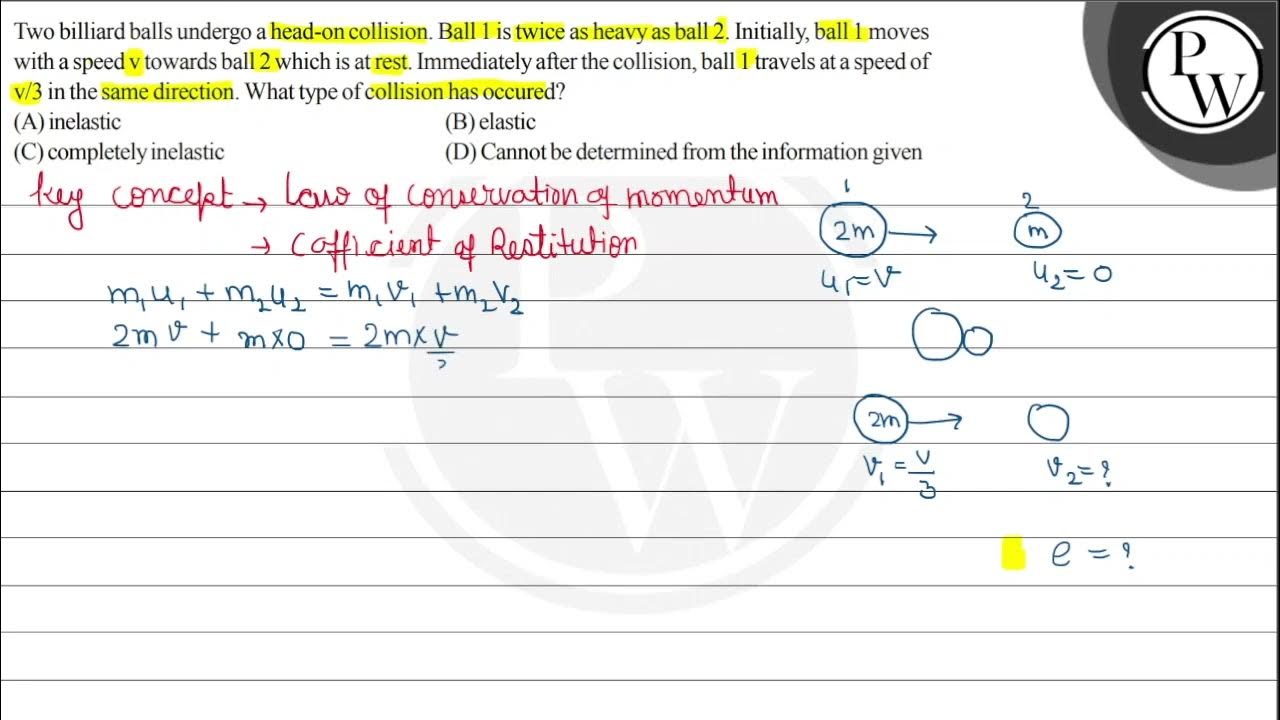 Two billiard balls undergo a head-on collision. Ball 1 is twice as heavy as ball 2. Initially, ball 1 moves
with a speed v towards ball 2 which is at rest. Immediately after the collision, ball 1 travels at a speed of
v/3 in the same direction. What type of collision has occured?
(A) inelastic (B) elastic
(C) completely inelastic (D) Cannot be determined from the information given
PW
Key concept → Law of conservation of momentum
→ Cofficient of Restitution
m₁u₁ + m₂u₂ = m₁v₁ + m₂v₂
2mv + m×0 = 2m×v/3
1 2
2m → m
u₁=v u₂=0
2m →
v₁=v/3 v₂=?
e = ?
PW